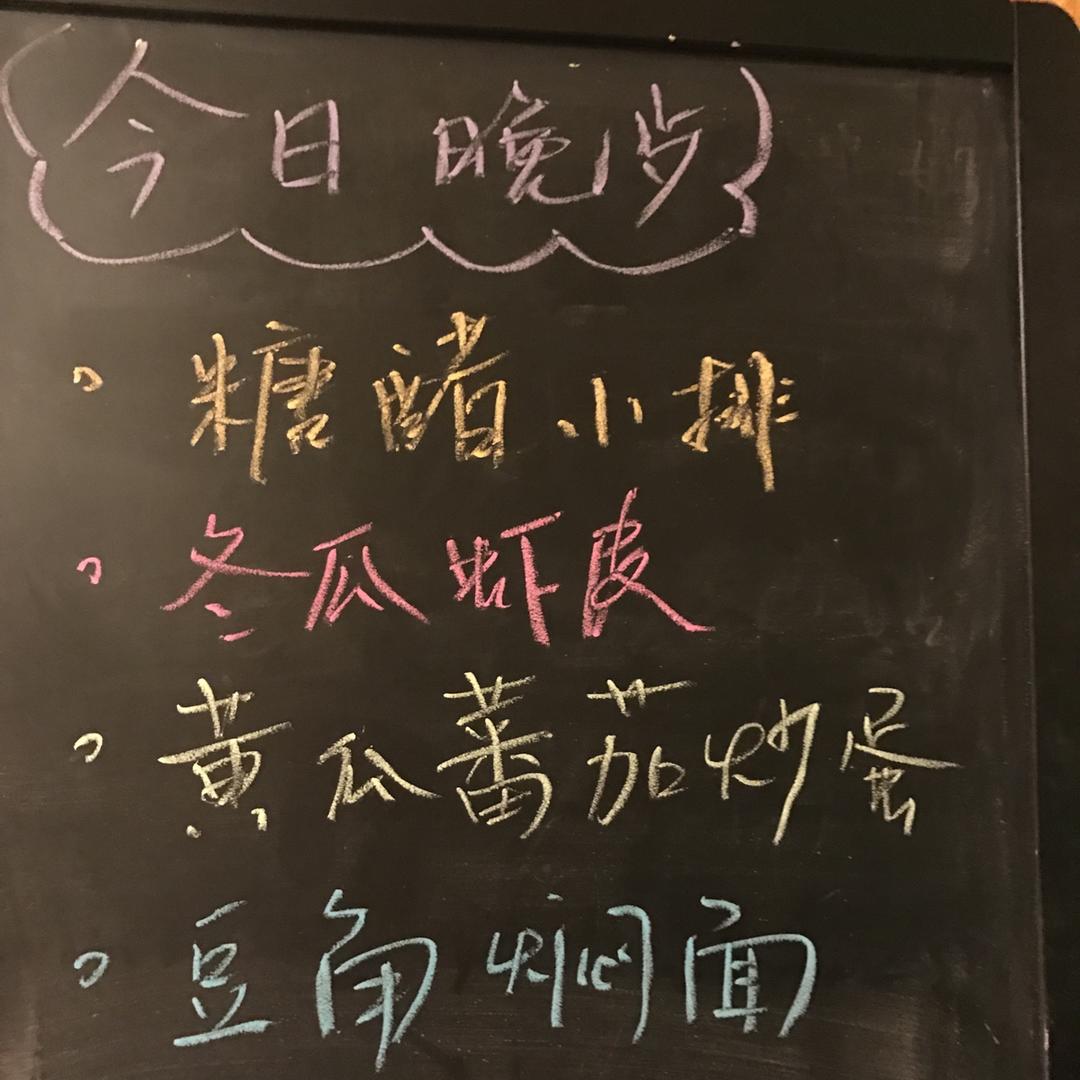 今日晚歺
糖醋小排
冬瓜虾皮
黄瓜蕃茄炒蛋
豆角焖面